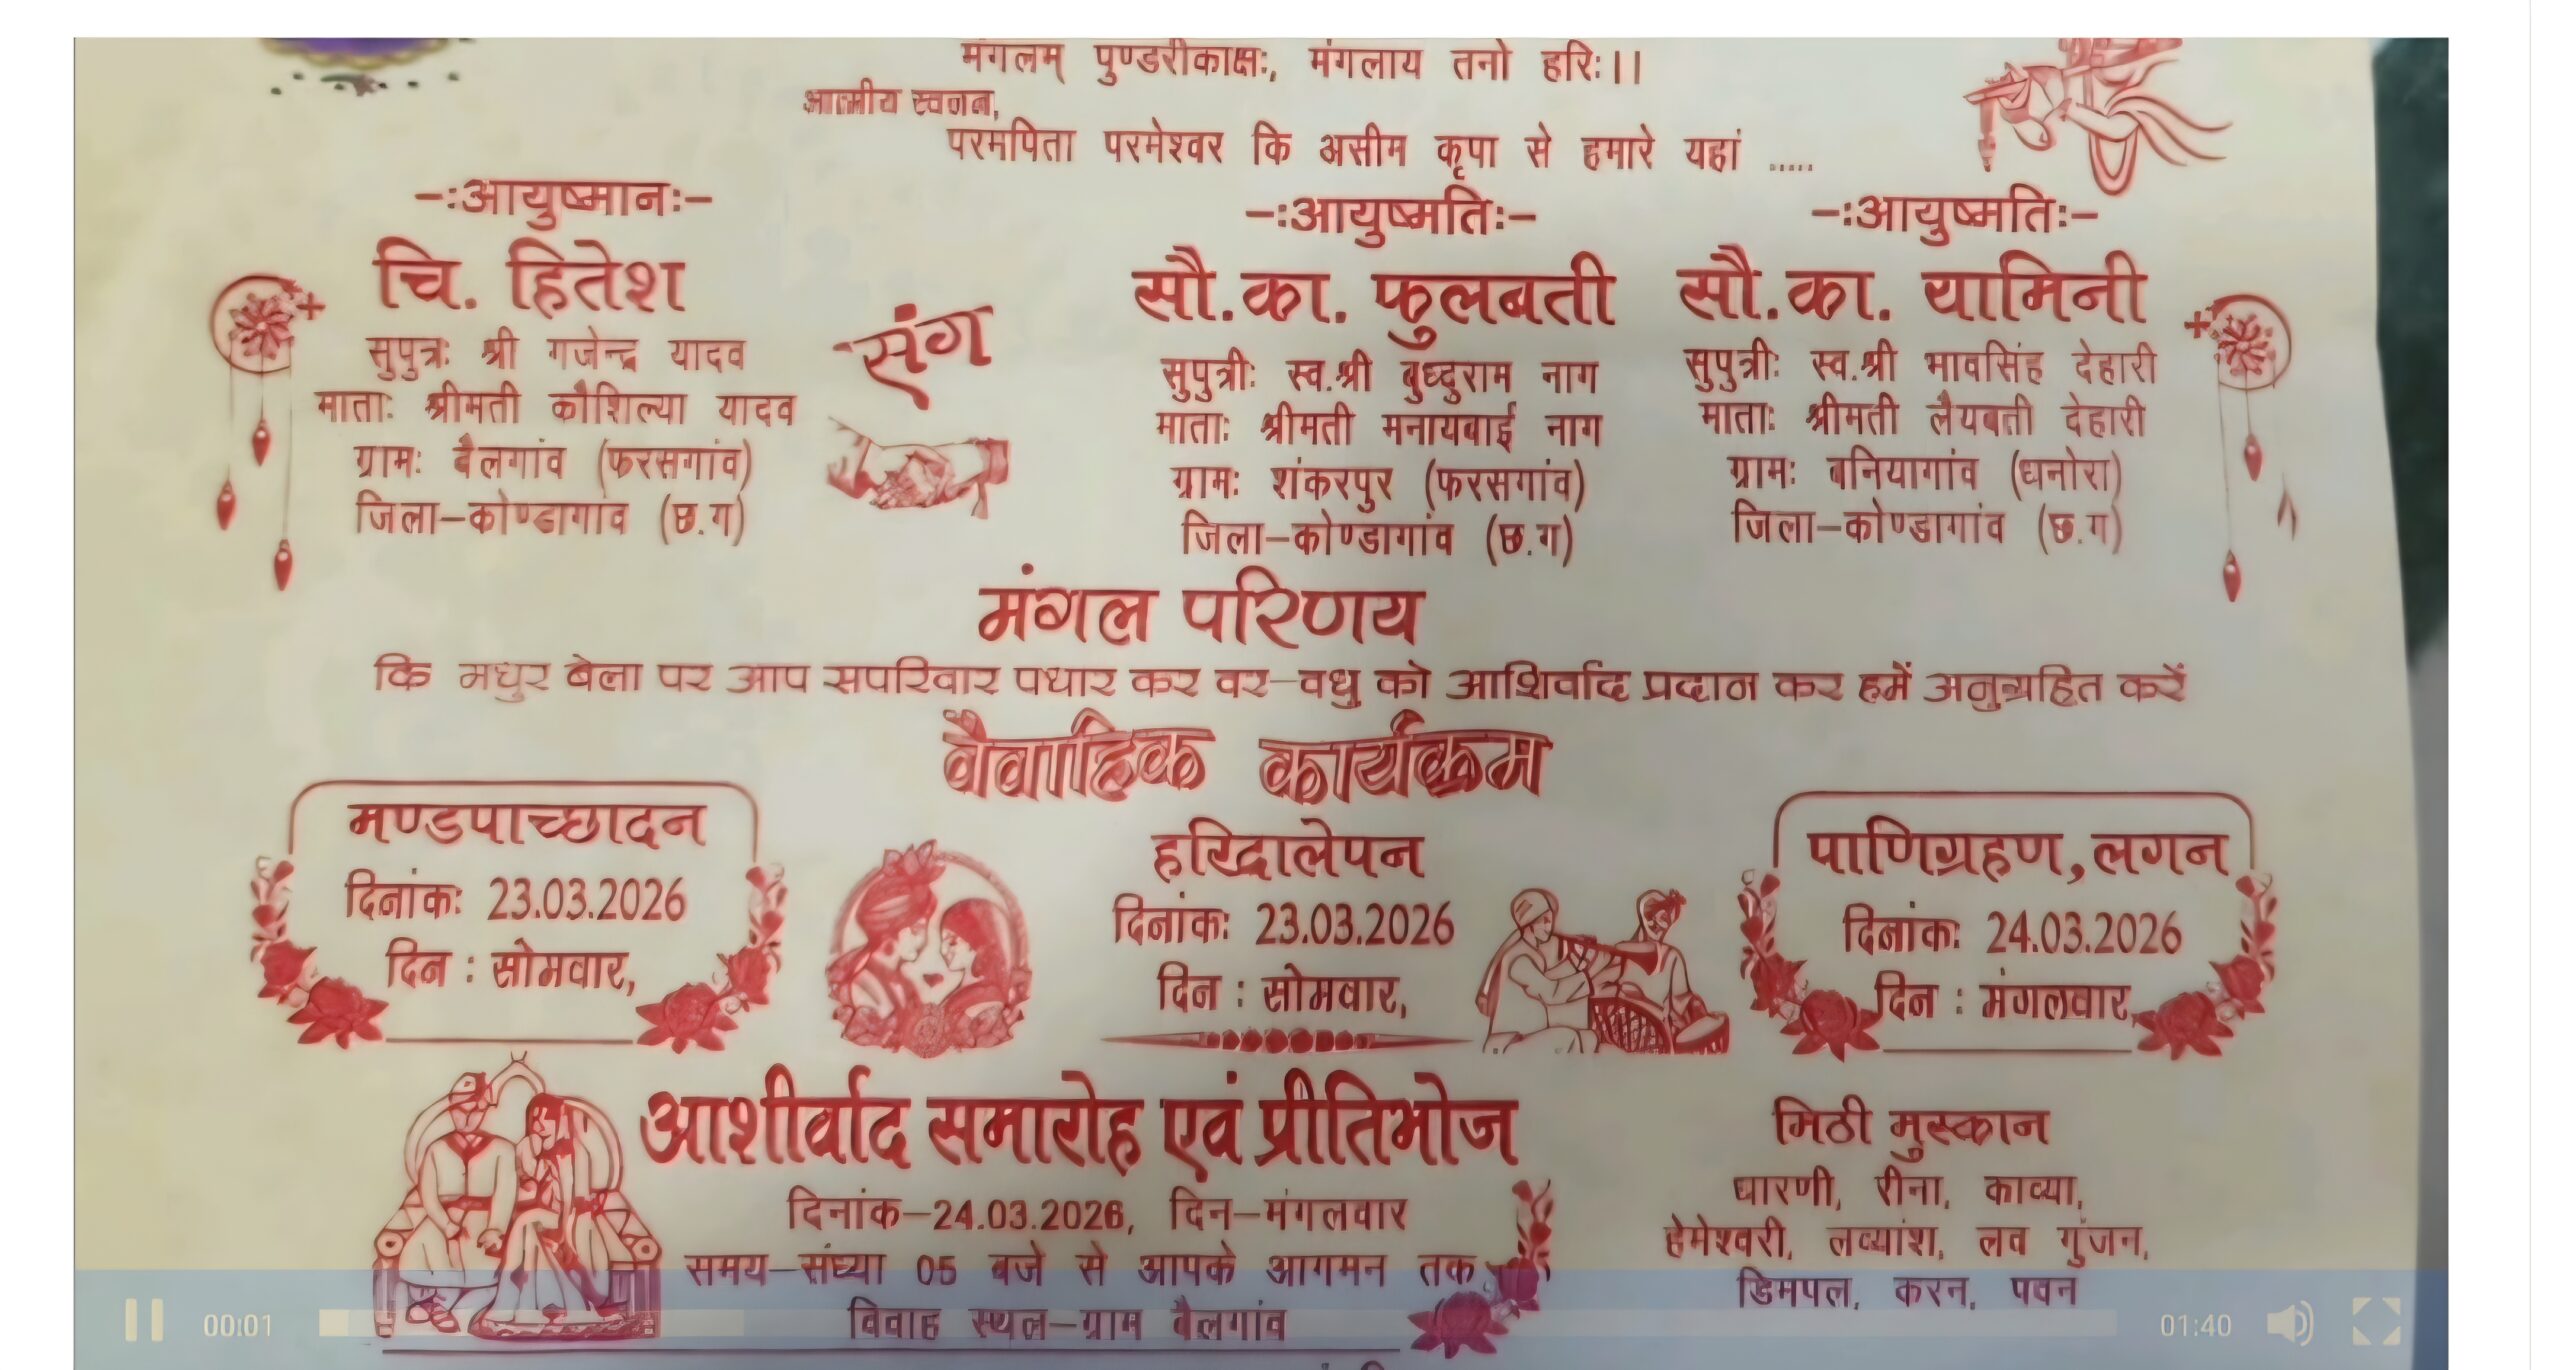 मंगलम् पुण्डरीकाक्षः, मंगलाय तनो हरिः।।
आत्मीय स्वजन,
परमपिता परमेश्वर कि असीम कृपा से हमारे यहां .....
-:आयुष्मानः-
चि. हितेश
सुपुत्रः श्री गजेन्द्र यादव
माताः श्रीमती कौशिल्या यादव
ग्रामः बैलगांव (फरसगांव)
जिला-कोण्डागांव (छ.ग)
संग
-:आयुष्मतिः-
सौ.का. फुलबती
सुपुत्रीः स्व.श्री बुध्दुराम नाग
माताः श्रीमती मनायबाई नाग
ग्रामः शंकरपुर (फरसगांव)
जिला-कोण्डागांव (छ.ग)
-:आयुष्मतिः-
सौ.का. यामिनी
सुपुत्रीः स्व.श्री भावसिंह देहारी
माताः श्रीमती लैयबती देहारी
ग्रामः बनियागांव (धनोरा)
जिला-कोण्डागांव (छ.ग)
मंगल परिणय
कि मधुर बेला पर आप सपरिवार पधार कर वर-वधु को आशिर्वाद प्रदान कर हमें अनुग्रहित करें
वैवाहिक कार्यक्रम
मण्डपाच्छादन
दिनांकः 23.03.2026
दिन : सोमवार,
हरिद्रालेपन
दिनांकः 23.03.2026
दिन : सोमवार,
पाणिग्रहण, लगन
दिनांकः 24.03.2026
दिन : मंगलवार,
आशीर्वाद समारोह एवं प्रीतिभोज
दिनांक-24.03.2026, दिन-मंगलवार
समय-संध्या 05 बजे से आपके आगमन तक
विवाह स्थल-ग्राम बैलगांव
मिठी मुस्कान
धारणी, रीना, काव्या,
हेमेश्वरी, लव्यांश, लव गुंजन,
डिमपल, करन, पवन
00:01
01:40